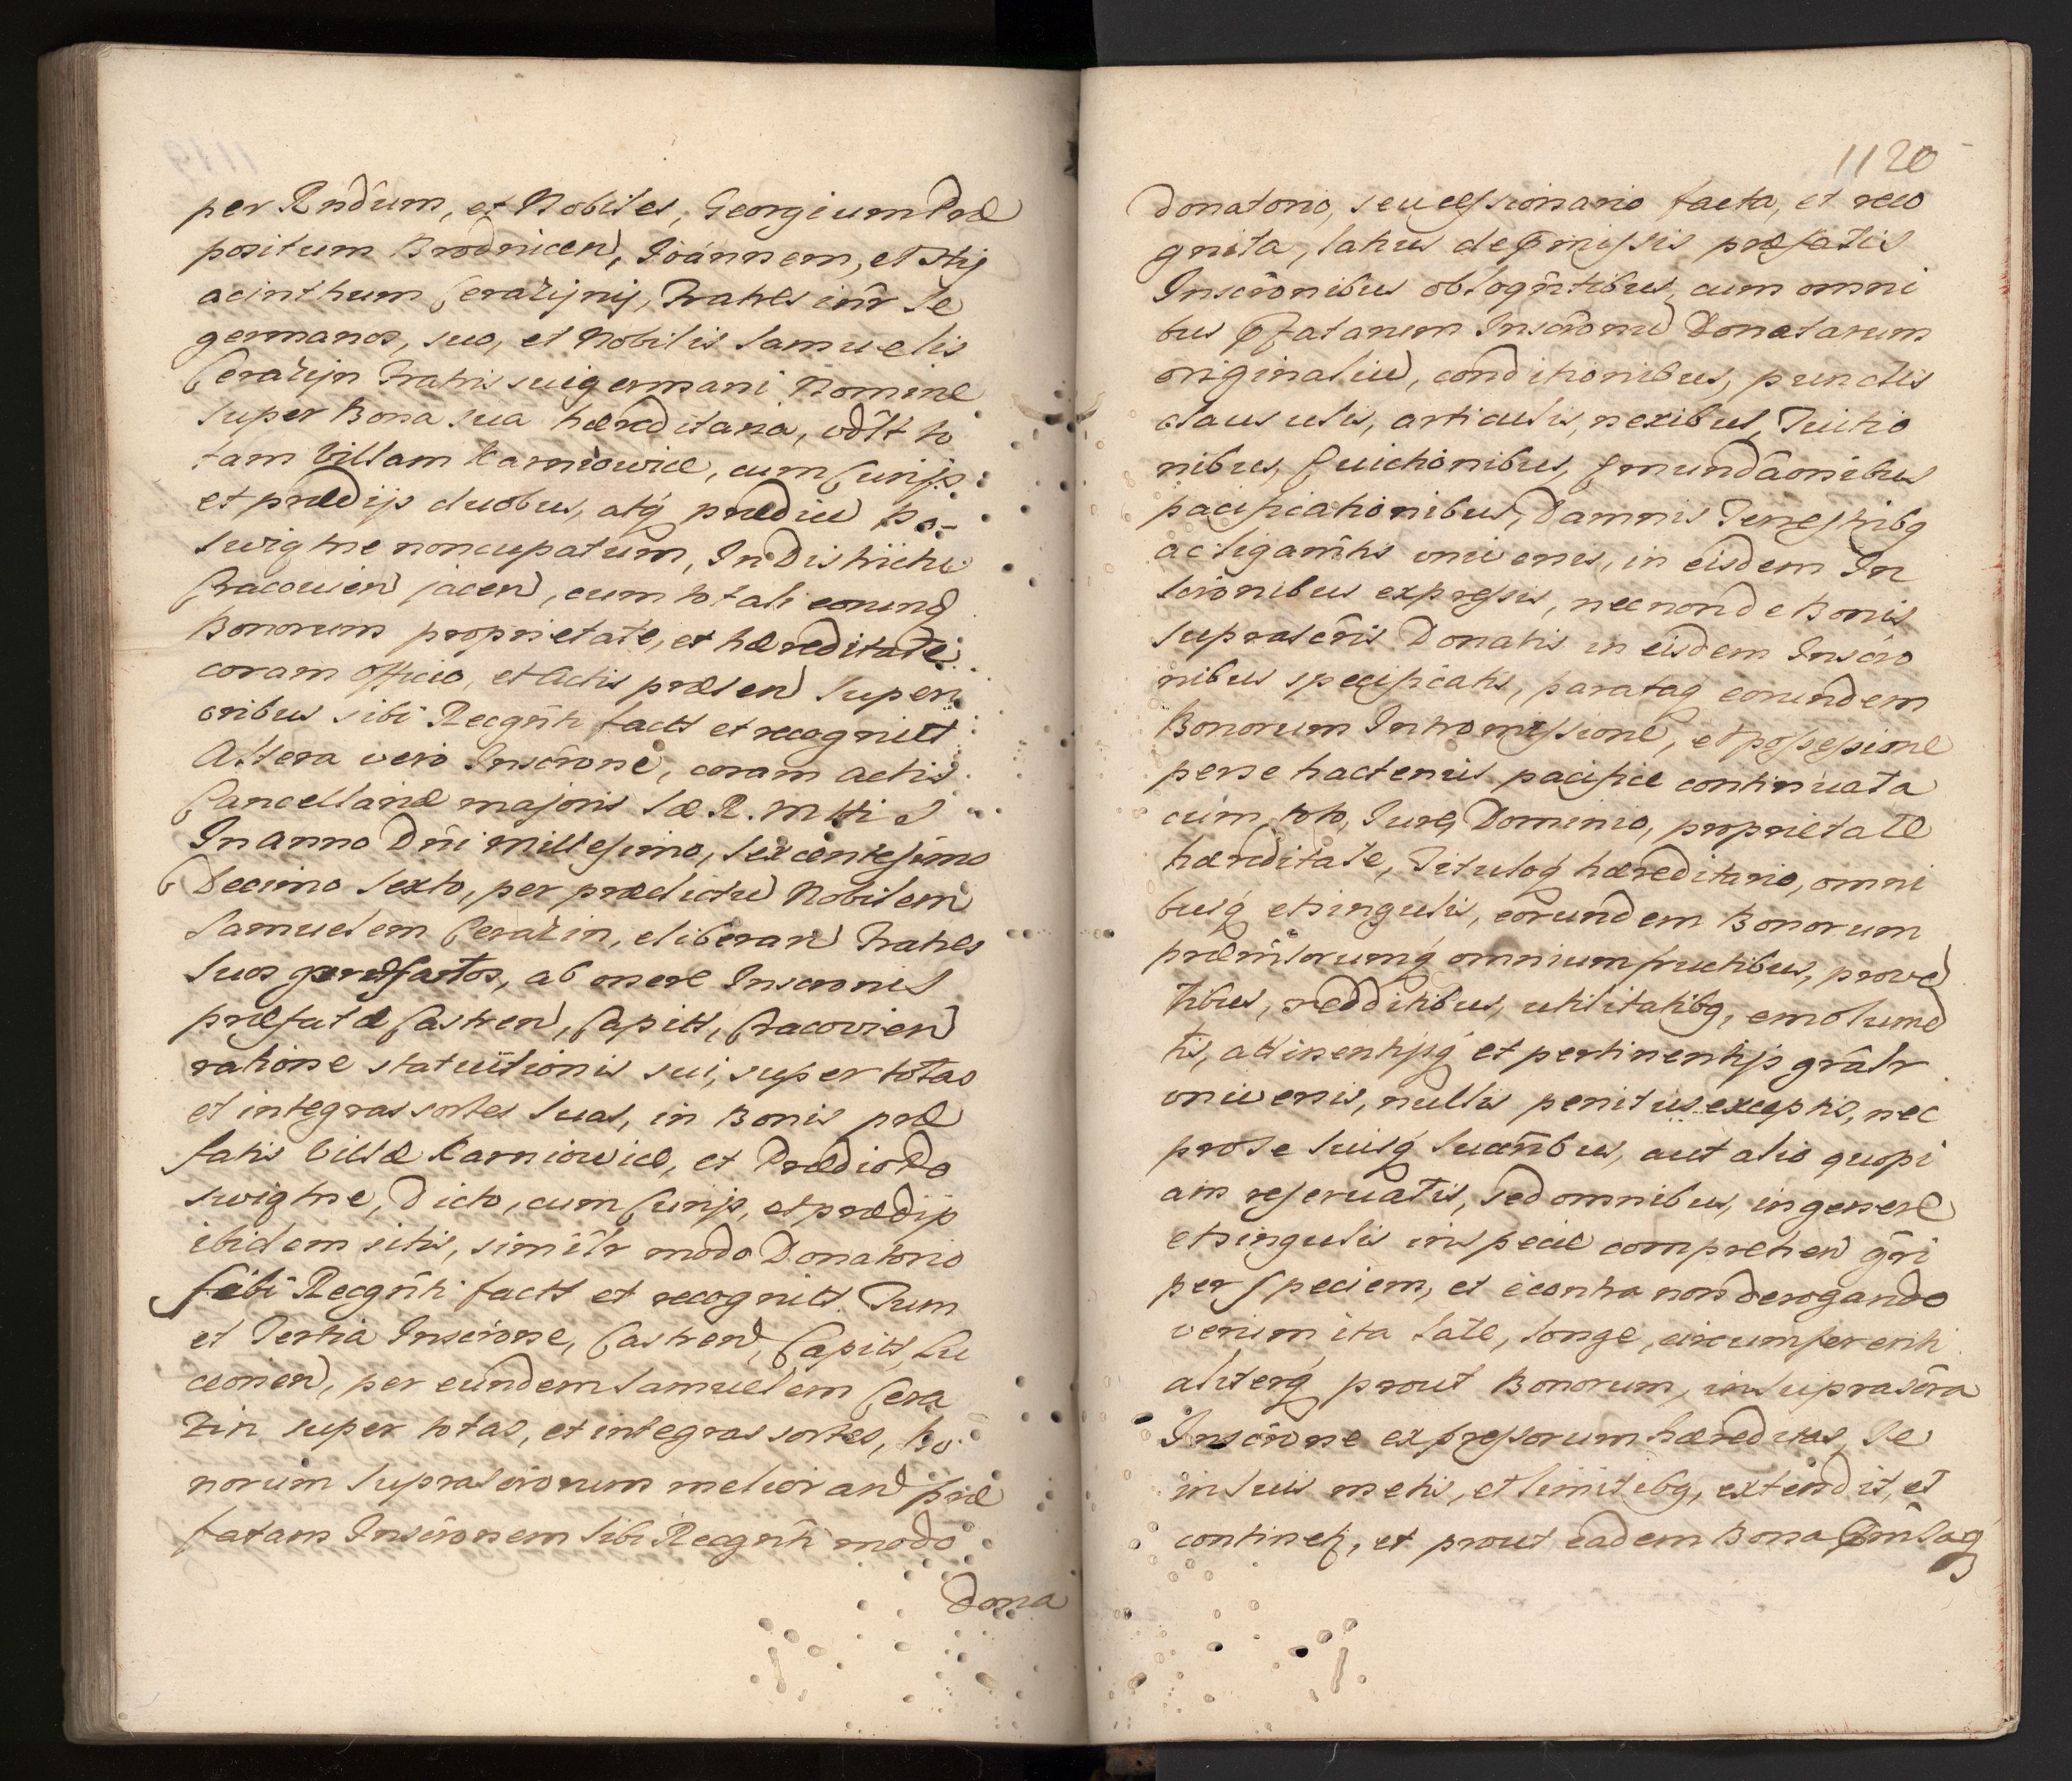 per Rndum, et Nobiles, Georgium Præ
positum Brodnicen, Joánnem, et Hy
acinthum Cerazijnij, Fratres inr se
germanos, suo, et Nobilis Samuelis
Cerazijn Fratris sui germani Nomine
super Bona sua hæreditaria, vdlt to
tam Villam Karniowice, cum Curijs
et prædijs duobus, atq prædiu Po-
swigtne noncupatum, In Districtu
Cracovien jacen, cum totali eorund
Bonorum proprietate, et hæreditate
coram officio, et Actis præsen Superi
oribus sibi Recgnti factt et recognitt
Altera vero Inscrone, coram actis
Cancellariæ majoris Sæ R. Mttis
In anno Dni Millesimo, Sexcentesimo
Decimo Sexto, per prædictu Nobilem
Samuelem Cerazin, eliberan Fratres
suos præfatos, ab onere Inscronis
præfatæ Castren, Capitt, Cracovien
ratione statuitionis sui, super totas
et integras sortes suas, in Bonis præ
fatis Villæ Karniowice, et Prædio Po
swigtne, Dicto, cum Curijs, et prædijs
ibidem sitis, similr modo Donatorio
sibi Recgnti factt et recognitt. Tum
et Tertia Inscrone, Castren, Capitt, Lu
ceorien, per eundem Samuelem Cera
zin super totas, et integras sortes, Bo
norum suprascronum meliorand præ
fatam Inscronem sibi Recgnti modo
Dona
1120
Donatorio, seu cessionario facta, et reco
gnita, latius de pmissis præfatis
Inscronibus obloqntibus, cum omni
bus pfatarum Inscronu Donatarum
originaliu, conditionibus, punctis
clausulis, articulis, nexibus, Tuitio
nibus, Euictionibus, Emundaonibus
pacificationibus, Damnis Terrestribq
ac ligamtis universis, in eisdem In
scronibus expressis, necnon de Bonis
suprascris Donatis in eisdem Inscro
nibus specificatis, parataq eorundem
Bonorum Intromissione, et possessione
per se hactenus pacifice continuata
cum toto, Jure, Dominio, proprietate
hæreditate, Tituloq hæreditario, omni
busq et singulis, eorundem Bonorum
præmissorumq omnium fructibus, prove
tibus, redditibus, utilitatibq, emolume
tis, attinentijsq et pertinentijs gralr
universis, nullis penitus exceptis, nec
pro se suisq succribus, aut alio quopi
am reservatis, sed omnibus, in genere
et singulis in specie comprehen gri
per speciem, et econtra non derogando
verum ita late, longe, circumferenti
aliterq prout Bonorum, in suprascra
Inscrone expressorum hæreditas, se
in suis metis, et limitibq, extendit, et
continet, et prout eadem Bona pmssaq